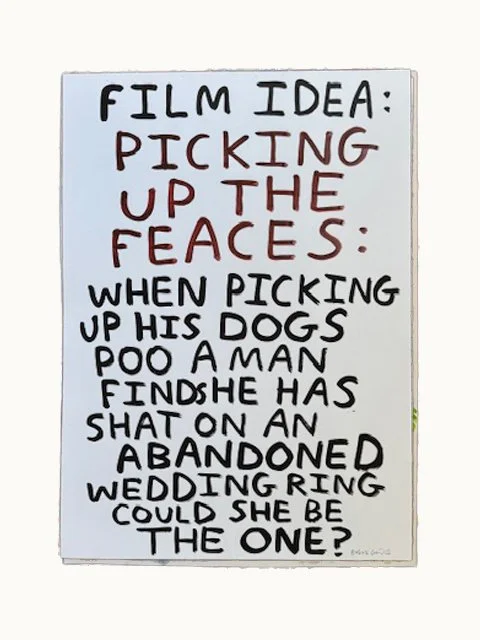 FILM IDEA:
PICKING
UP THE
FEACES:
WHEN PICKING
UP HIS DOGS
POO A MAN
FINDS HE HAS
SHAT ON AN
ABANDONED
WEDDING RING
COULD SHE BE
THE ONE?